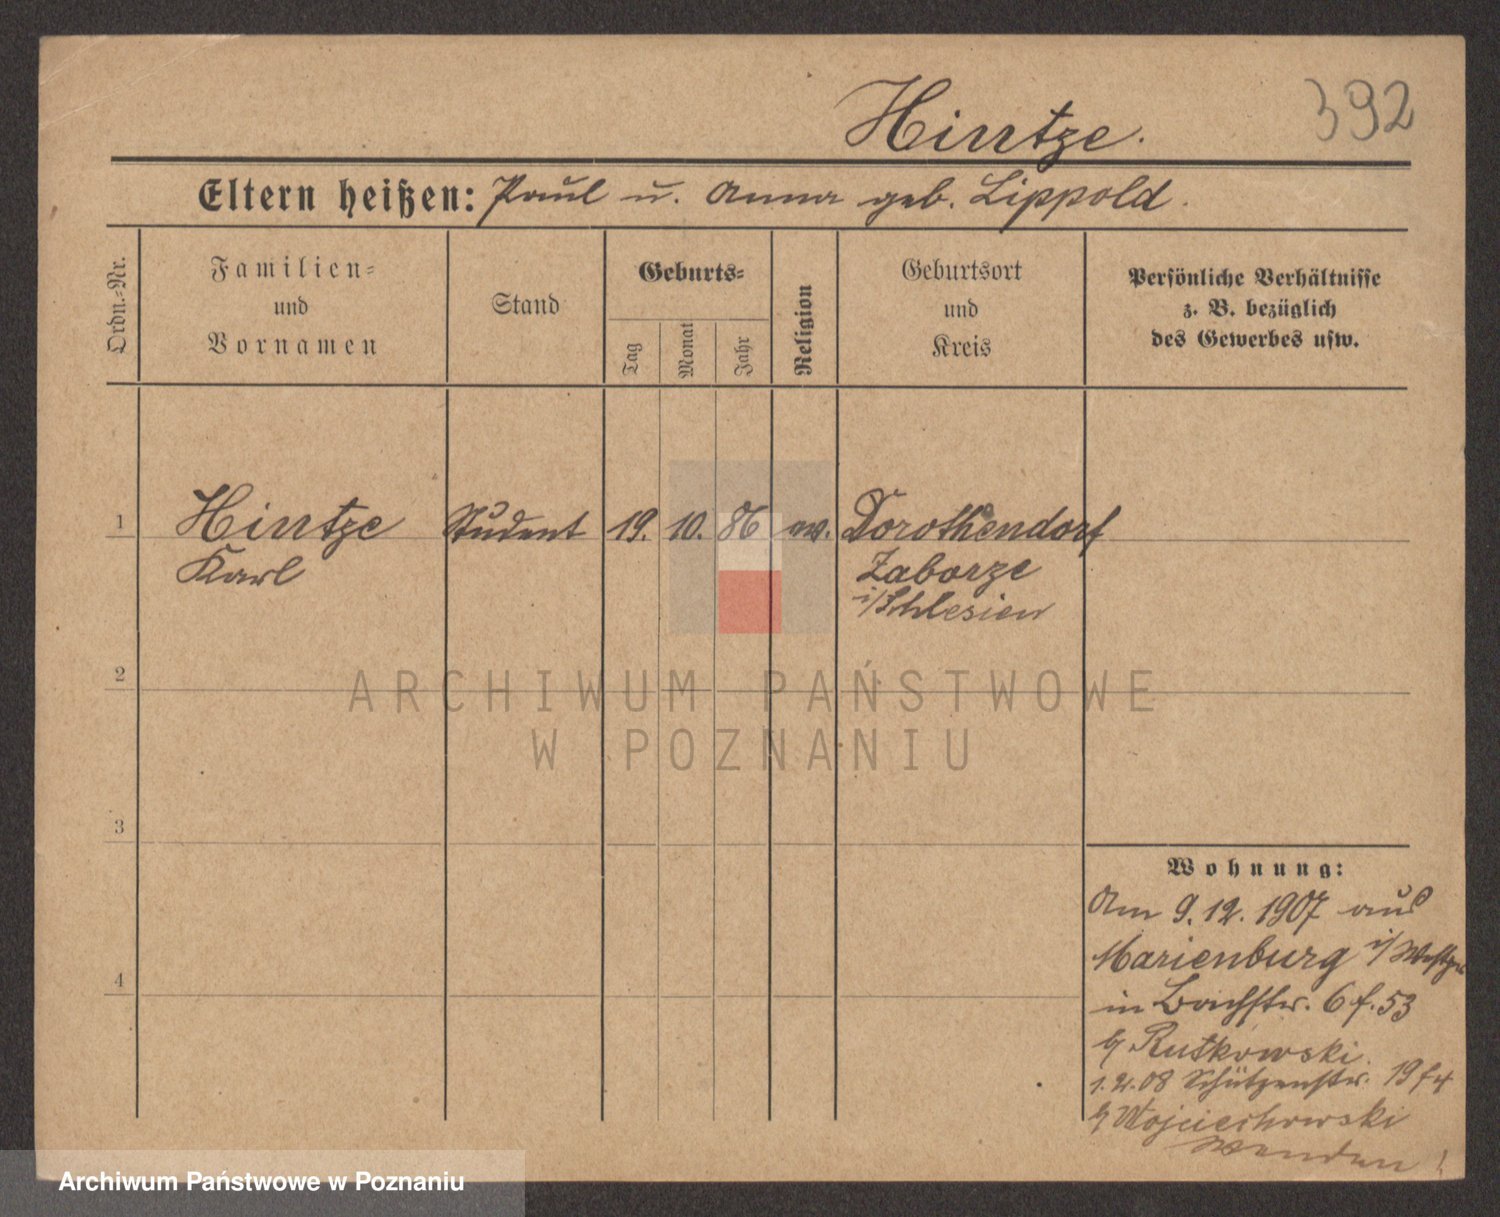 392
Hintze.
Eltern heißen: Paul u. Anna geb. Lippold.
Ordn.-Nr.
Familien-
und
Vornamen
Stand
Geburts-
Tag
Monat
Jahr
Religion
Geburtsort
und
Kreis
Persönliche Verhältnisse
z. B. bezüglich
des Gewerbes usw.
1 Hintze Student 19. 10. 86 ev. Dorothendorf
Karl Zaborze
i/Schlesien
2
ARCHIWUM PAŃSTWOWE
W POZNANIU
3
Wohnung:
Am 9.12.1907 aus
Marienburg i/Westpr
4
in Bachstr. 6 f. 53
b/ Rutkowski.
1.2.08 Schützenstr. 19 f 4
b/ Wojciechowski
Wenden!
Archiwum Państwowe w Poznaniu